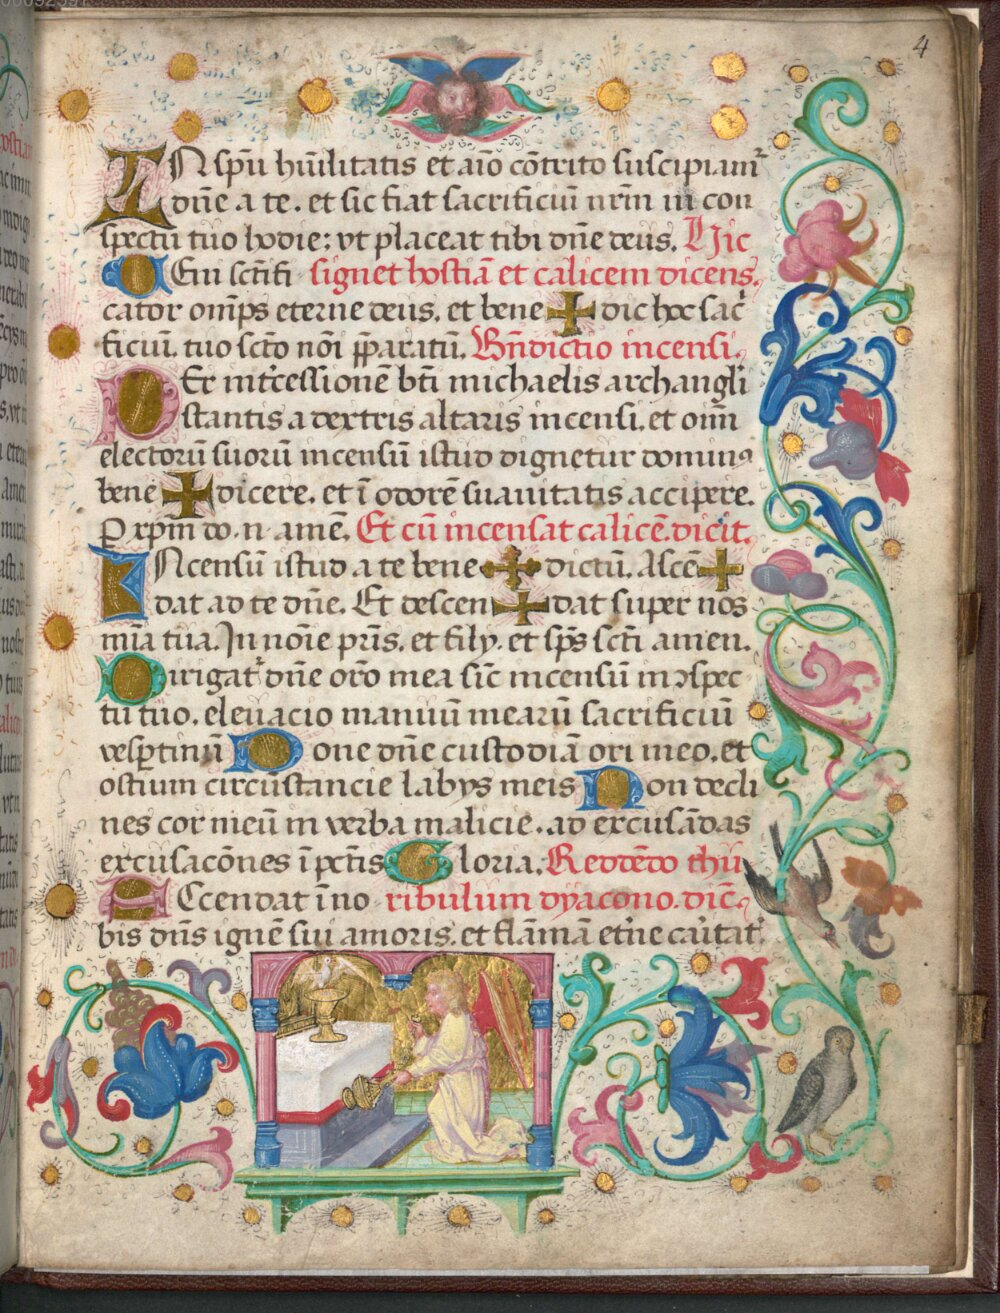 4
IN spū hūilitatis et aīo cōtrito suscipiam᷑
dn̄e a te. et sic fiat sacrificiū nrm̄ in con
spectu tuo hodie: vt placeat tibi dn̄e deus. Hic
Ueni scīfi signet hostiā et calicem dicens.
cator om̄ps eterne deus. et bene ✠ dic hoc sac
ficiū. tuo scō nōi p̱paratū. Bn̄dictio incensi.
PEr int̄cessionē bt̄i michaelis archangl̄i
stantis a dextris altaris incensi. et om̄
electorū suorū incensū istud dignetur dominus
bene ✠ dicere. et ī odorē suauitatis accipere.
P xpm̄ do. n. amē. Et cū incensat calicē. dicit.
INcensū istud a te bene ✠ dictū. Ascē ✠
dat ad te dn̄e. Et descen ✠ dat super nos
mīa tua. In noīe pr̄is. et filÿ. et sp̄s scī amen.
Dirigat᷑ dn̄e or̄o mea sic̄ incensū in ↄspec
tu tuo. eleuacio manuū mearū sacrificiū
vesp̱tinū Pone dn̄e custodiā ori meo. et
ostium circūstancie labÿs meis Non decli
nes cor meū in verba malicie. ad excusādas
excusacōnes ī pctīs Gloria. Reddēdo thu
ACcendat ī no ribulum dÿacono. dic̄.
bis dn̄s ignē sui amoris. et flāmā et̄ne caritat̄.